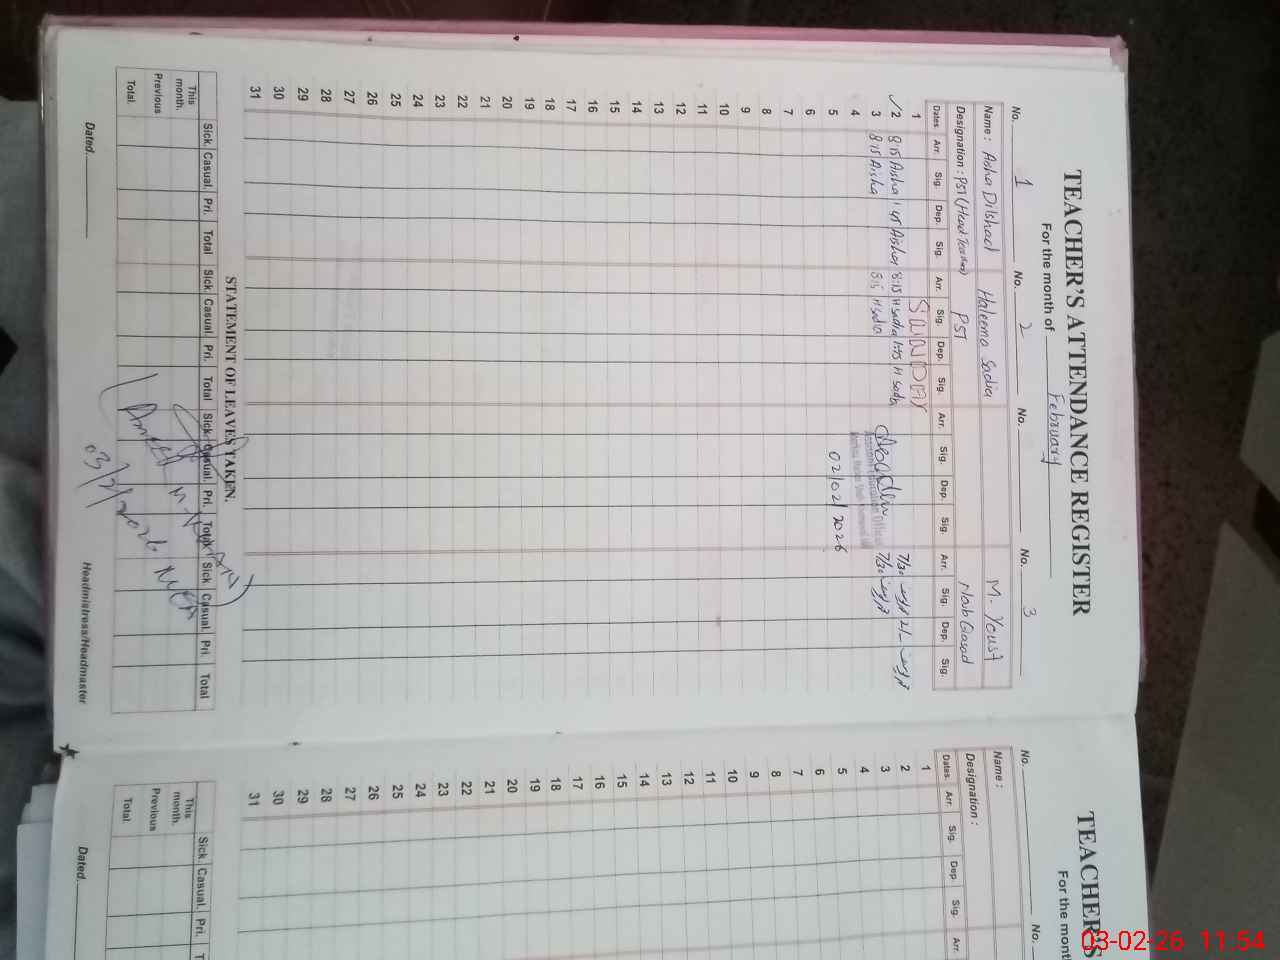 TEACHER'S ATTENDANCE REGISTER
For the month of February
No. 1 No. 2 No. No. 3
Name: Aisha Dilshad Haleema Sadia M. Yousf
Designation: PST (Head Teacher) PST Naib Qasad
Dates. Arr. Sig. Dep. Sig. Arr. Sig. Dep. Sig. Arr. Sig. Dep. Sig. Arr. Sig. Dep. Sig.
1 SUNDAY
2 8:15 Aisha 1:45 Aisha 8:15 H Sadia 1:45 H Sadia 7/30
3 8:15 Aisha 8:15 H Sadia 7/30
4
5 02/02/2026
6
7
8
9
10
11
12
13
14
15
16
17
18
19
20
21
22
23
24
25
26
27
28
29
30
31
STATEMENT OF LEAVES TAKEN.
Sick. Casual. Pri. Total Sick. Casual. Pri. Total Sick. Casual. Pri. Total Sick. Casual. Pri. Total
This month.
Previous
Total.
03/2/2026
Dated. Headmistress/Headmaster
TEACHER'S
For the month
No. No.
Name:
Designation:
Dates. Arr. Sig. Dep. Sig. Arr.
1
2
3
4
5
6
7
8
9
10
11
12
13
14
15
16
17
18
19
20
21
22
23
24
25
26
27
28
29
30
31
Sick. Casual. Pri.
This month.
Previous
Total.
Dated.
03-02-26 11:54